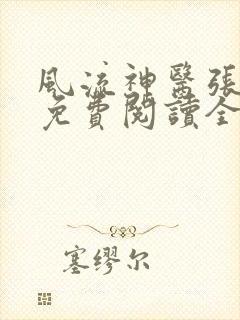 風流神醫張
免費閱讀全
塞缪尔